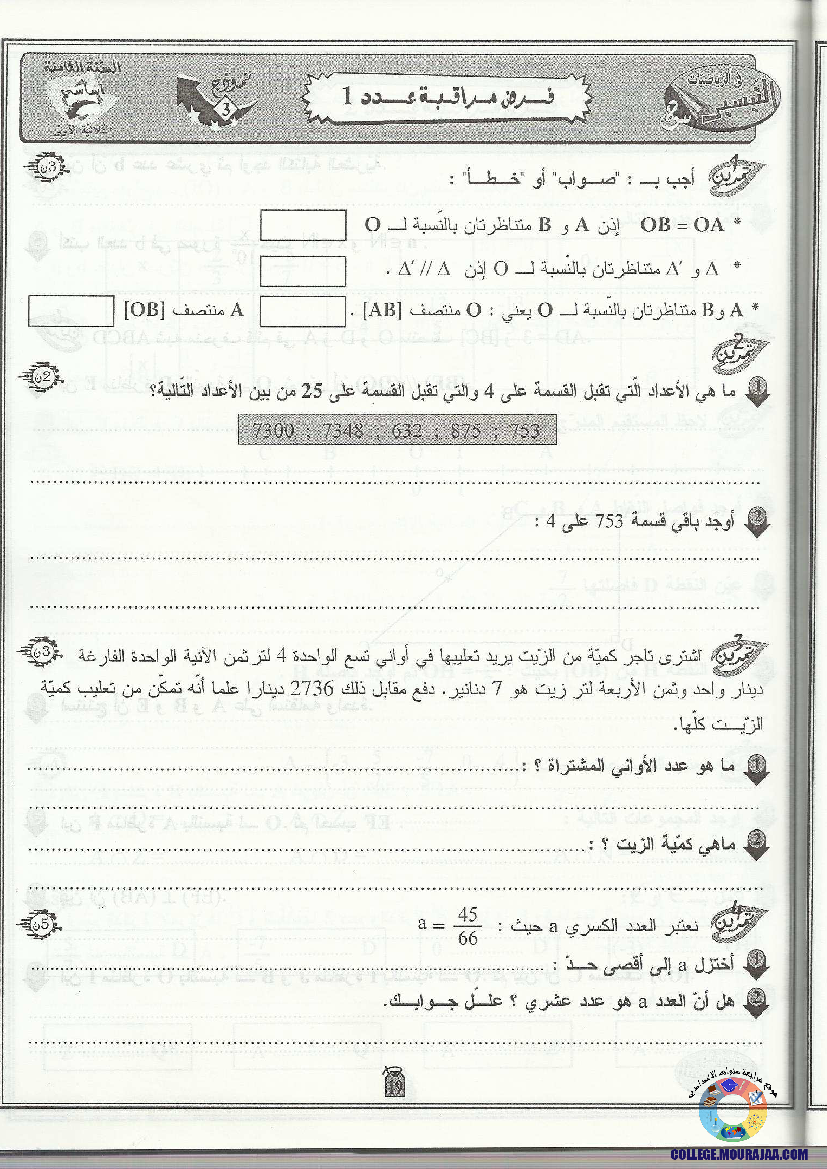 السنة الثامنة
أساسي
نموذج
3
فرض مراقبة عدد 1
في الرياضيات
3ن
تمرين 1 أجب بـ : "صـواب" أو "خـطـأ" :
* OB = OA إذن A و B متناظرتان بالنّسبة لـ O
* Δ و 'Δ متناظرتان بالنّسبة لـ O إذن Δ // Δ' .
* A وB متناظرتان بالنّسبة لـ O يعني : O منتصف [AB] . A منتصف [OB]
تمرين 2
2ن
1 ما هي الأعداد الّتي تقبل القسمة على 4 والتي تقبل القسمة على 25 من بين الأعداد التّالية؟
7300 ; 7348 ; 632 ; 875 ; 753
2 أوجد باقي قسمة 753 على 4 :
3ن
تمرين 3 اشترى تاجر كميّة من الزّيت يريد تعليبها في أواني تسع الواحدة 4 لتر ثمن الآنية الواحدة الفارغة
دينار واحد وثمن الأربعة لتر زيت هو 7 دنانير. دفع مقابل ذلك 2736 دينارا علما أنّه تمكّن من تعليب كميّة
الزّيــت كلّها.
1 ما هو عدد الأواني المشتراة ؟ :
2 ماهي كمّية الزيت ؟ :
5ن
تمرين 4 نعتبر العدد الكسري a حيث : a = 45/66
1 أختزل a إلى أقصى حـدّ :
2 هل أنّ العدد a هو عدد عشري ؟ علّـل جـوابـك.
19
موقع مراجعة
COLLEGE.MOURAJAA.COM